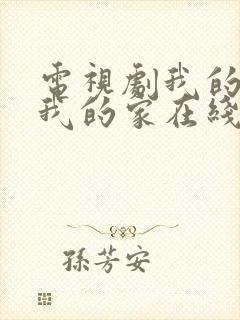 電視劇我的
我的家在綫
孫芳安